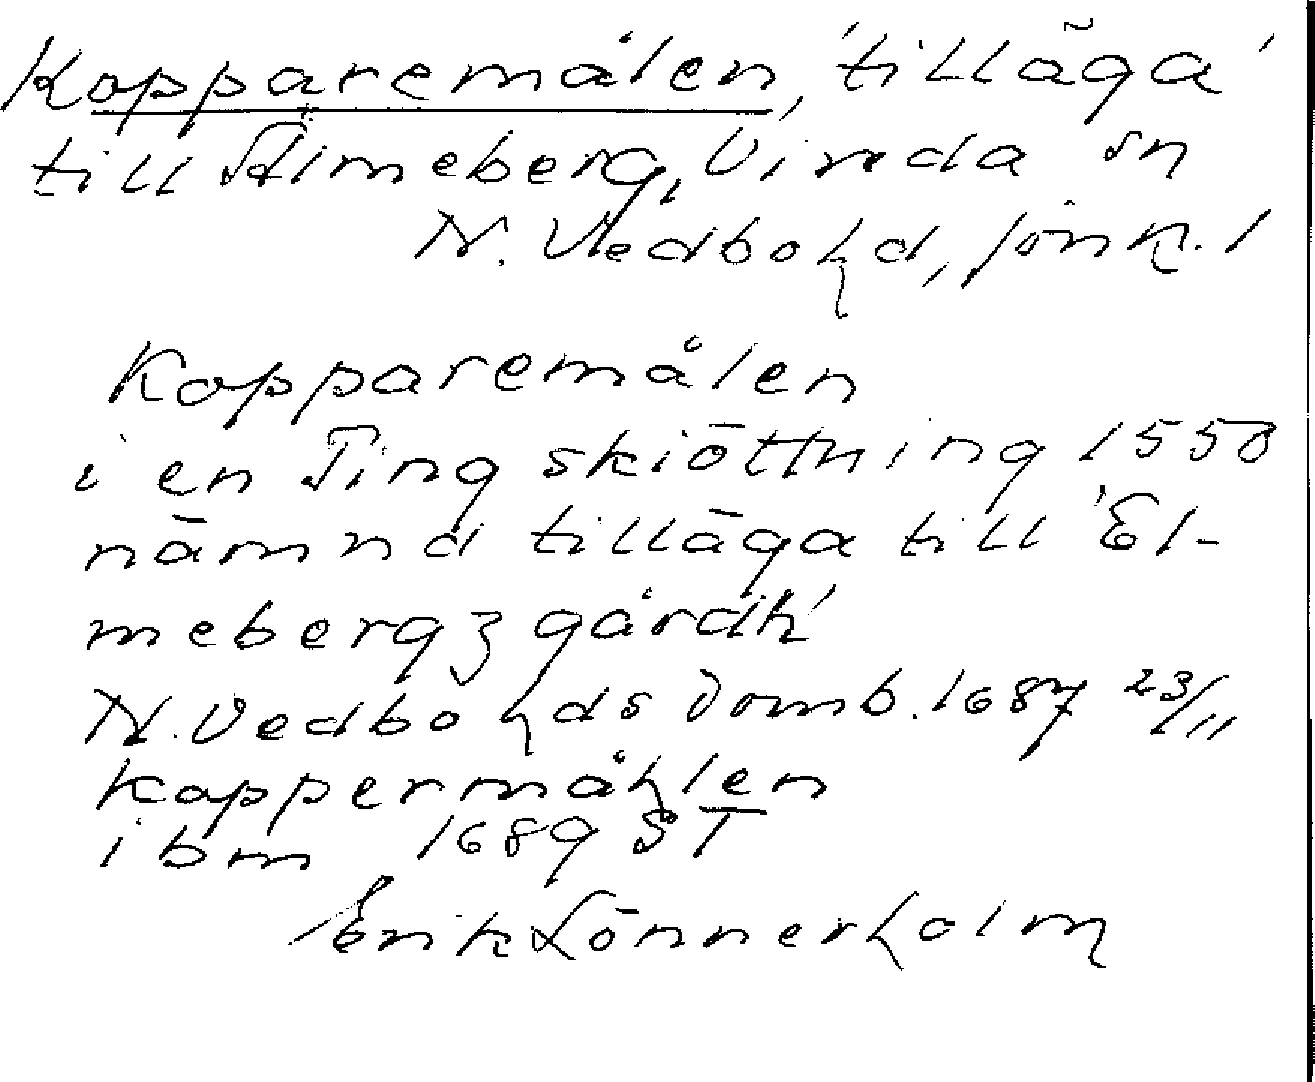 Kopparemålen, 'tilläga'
till Älmeberg, Vireda sn
N. Vedbo hd, Jönk. l
Kopparemålen
i en Ting skiöttning 1550
nämnd tilläga till 'El-
mebergz gårdh'
N. Vedbo hds domb. 1687 23/11
Koppermåhlen
ibm 1689 ST
Erik Lönnerholm